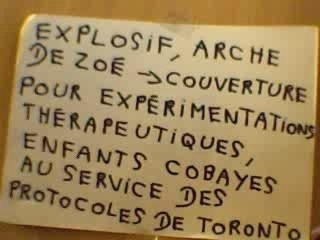 EXPLOSIF, ARCHE
DE ZOÉ → COUVERTURE
POUR EXPÉRIMENTATIONS
THÉRAPEUTIQUES,
ENFANTS COBAYES
AU SERVICE DES
PROTOCOLES DE TORONTO